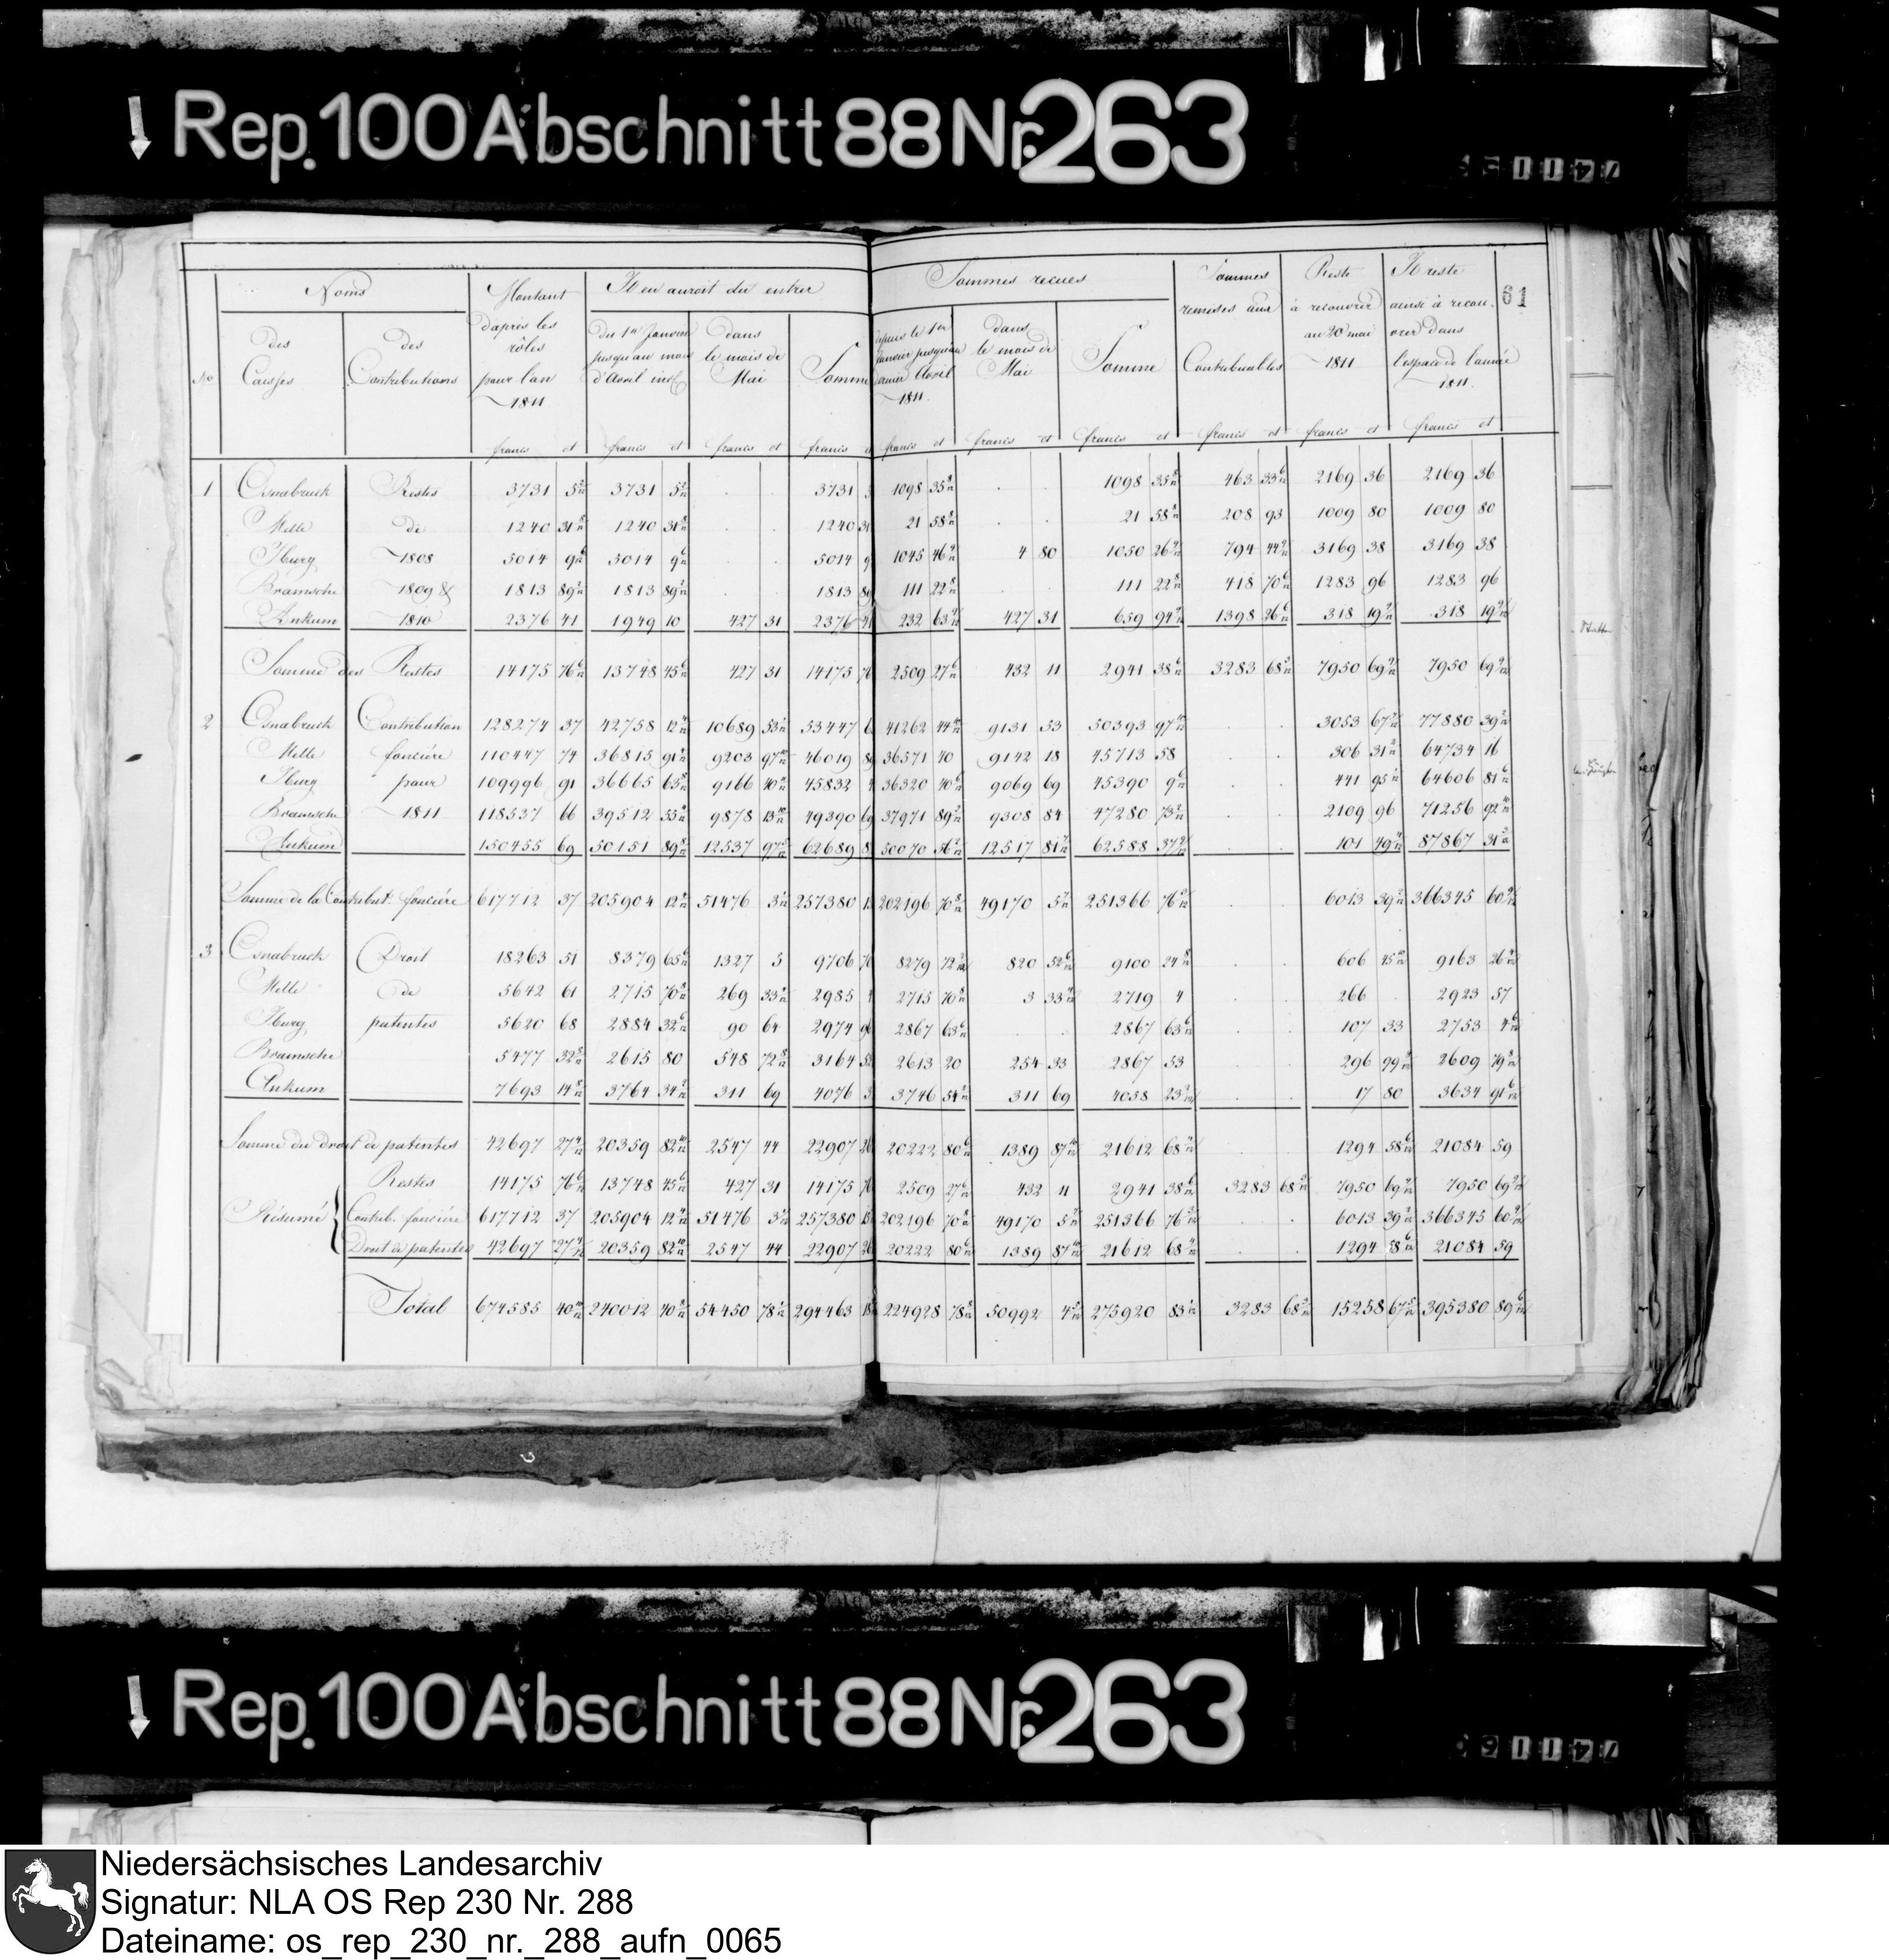 Rep. 100 Abschnitt 88 Nr. 263
61
Noms
Montant d'après les rôles pour l'an 1811
Il en auroit dû entrer
Sommes recues
Sommes remises aux Contribuables
Reste à recouvrer au 20 mai 1811
Il reste ainsi à recouvrer dans l'espace de l'année 1811.
No des Caisses des Contributions
du 1er Janvier jusqu'au mois d'Avril incl. dans le mois de Mai Somme
depuis le 1er Janvier jusqu'au dernier Avril 1811. dans le mois de Mai Somme
francs ct francs ct francs ct francs francs ct francs ct francs ct francs ct francs ct francs ct
1 Osnabruck Restes 3731 3731 . . 3731 1098 35 8/12 . . 1098 35 8/12 463 33 6/12 2169 36 2169 36
Melle de 1240 31 8/12 1240 31 8/12 . . 1240 31 21 58 8/12 . . 21 58 8/12 208 93 1009 80 1009 80
Iburg 1808 5014 9 6/12 5014 9 6/12 . . 5014 9 1045 46 4 80 1050 26 794 44 3169 38 3169 38
Bramsche 1809 & 1813 89 2/12 1813 89 2/12 . . 1813 111 22 8/12 111 22 8/12 418 70 6/12 1283 96 1283 96
Ankum 1810 2376 41 1949 10 427 31 2376 41 232 63 427 31 659 94 1398 26 6/12 318 19 318 19
Somme des Restes 14175 76 6/12 13748 45 6/12 427 31 14175 76 2509 27 6/12 432 11 2941 38 6/12 3283 68 7950 69 7950 69
2 Osnabruck Contribution 128274 37 42758 12 10689 53 53447 41262 44 9131 53 50393 97 3053 67 77880 39
Melle foncière 110447 74 36815 91 9203 97 46019 36571 40 9142 18 45713 58 . . 306 31 64734 16
Iburg pour 109996 91 36665 63 9166 40 45832 36320 40 9069 69 45390 9 . . 441 95 64606 81
Bramsche 1811 118537 66 39512 55 9878 13 49390 69 37971 89 9308 84 47280 73 . . 2109 96 71256 92
Ankum 150455 69 50151 89 12537 97 62689 50070 56 12517 81 62588 37 . . 101 49 87867 31
Somme de la Contribut. foncière 617712 37 205904 12 51476 3 257380 202196 70 49170 5 251366 76 . . 6013 39 366345 60
3 Osnabruck Droit 18263 51 8379 65 1327 5 9706 70 8279 72 820 52 9100 24 . . 606 45 9163 26
Melle de 5642 61 2715 70 269 33 2985 4 2715 70 3 33 2719 4 . . 266 . 2923 57
Iburg patentes 5620 68 2884 32 90 64 2974 96 2867 63 . . 2867 63 . . 107 33 2753 4
Bramsche 5477 32 2615 80 548 72 3164 52 2613 20 254 33 2867 53 . . 296 99 2609 79
Ankum 7693 14 3764 34 311 69 4076 3 3746 54 311 69 4058 23 . . 17 80 3634 91
Somme du droit de patentes 42697 27 20359 82 2547 44 22907 26 20222 80 1389 87 21612 68 . . 1294 58 21084 59
Résumé { Restes 14175 76 13748 45 427 31 14175 76 2509 27 432 11 2941 38 3283 68 7950 69 7950 69
Contrib. foncière 617712 37 205904 12 51476 3 257380 15 202196 70 49170 5 251366 76 . . 6013 39 366345 60
Droit de patentes 42697 27 20359 82 2547 44 22907 26 20222 80 1389 87 21612 68 . . 1294 58 21084 59
Total 674585 40 240012 40 54450 78 294463 18 224928 78 50992 4 275920 83 3283 68 15258 67 395380 89
Rep. 100 Abschnitt 88 Nr. 263
Niedersächsisches Landesarchiv
Signatur: NLA OS Rep 230 Nr. 288
Dateiname: os_rep_230_nr._288_aufn_0065